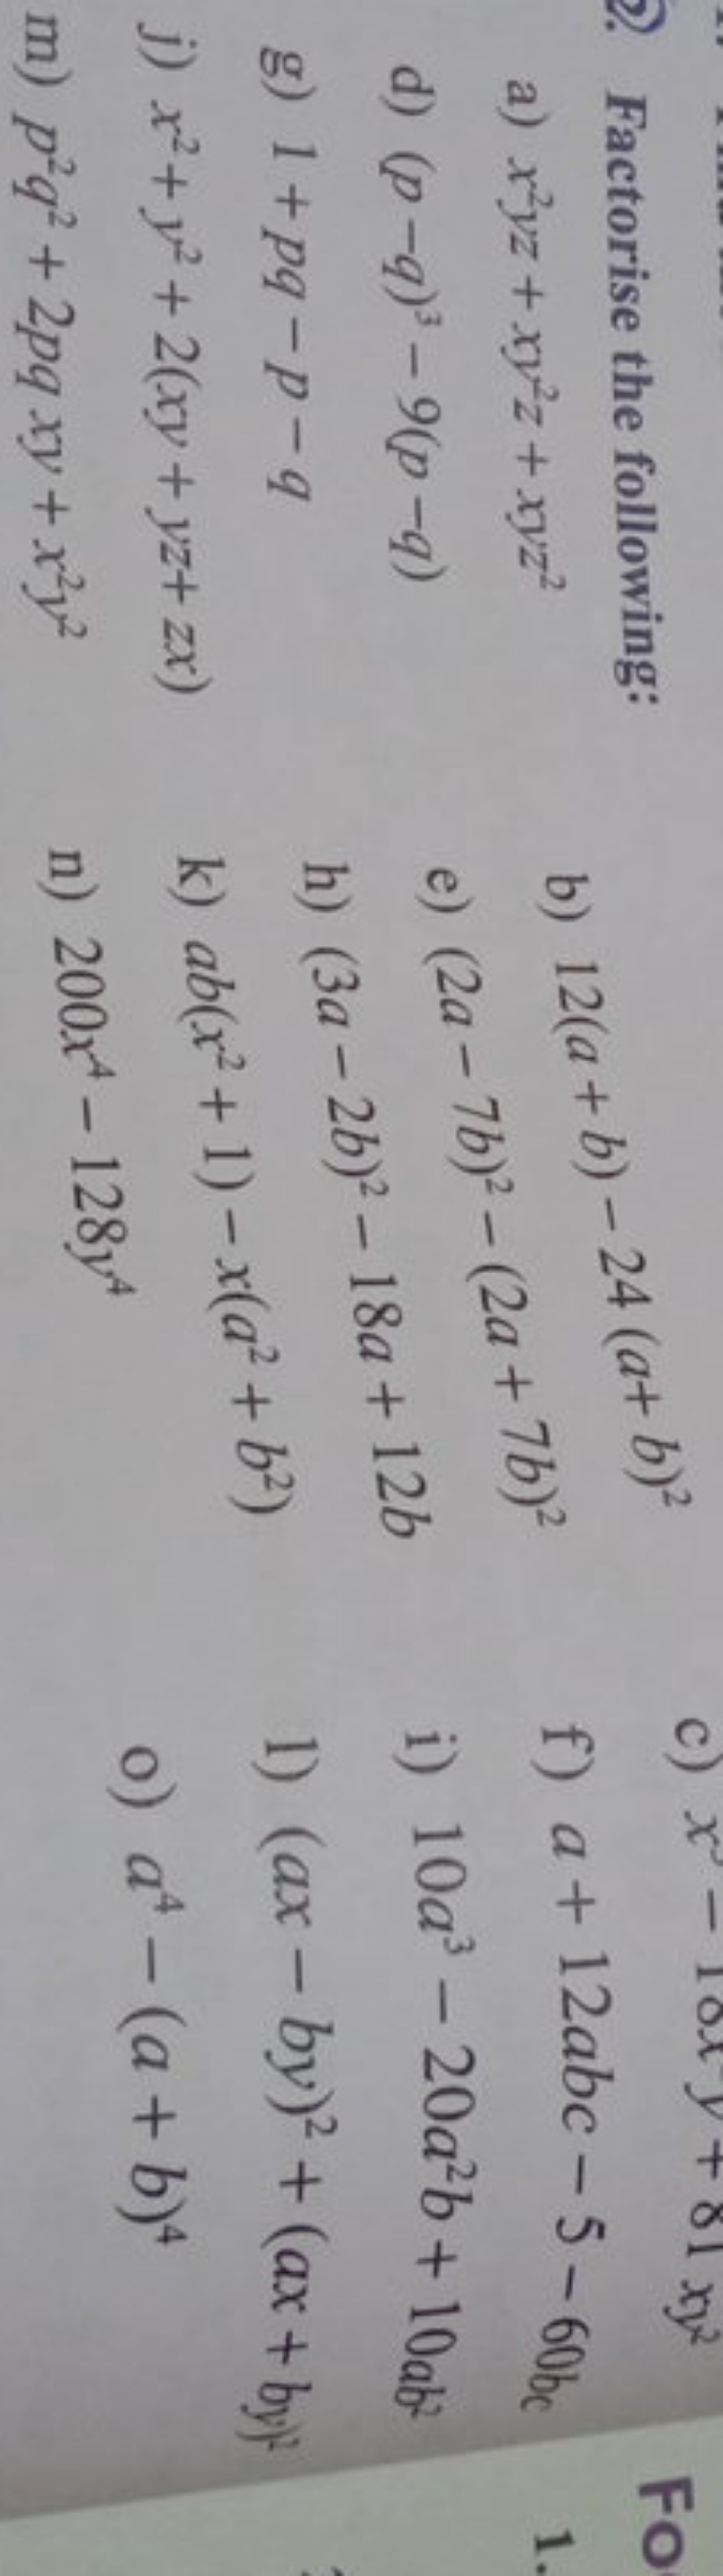 2. Factorise the following:
a) x²yz + xy²z + xyz²
b) 12(a + b) – 24 (a+ b)²
c) x³ – 18x²y + 81 xy²
d) (p –q)³ – 9(p –q)
e) (2a – 7b)² – (2a + 7b)²
f) a + 12abc – 5 – 60bc
g) 1 + pq – p – q
h) (3a – 2b)² – 18a + 12b
i) 10a³ – 20a²b + 10ab²
j) x² + y² + 2(xy + yz+ zx)
k) ab(x² + 1) – x(a² + b²)
l) (ax – by)² + (ax + by)²
m) p²q² + 2pq xy + x²y²
n) 200x⁴ – 128y⁴
o) a⁴ – (a + b)⁴
1.